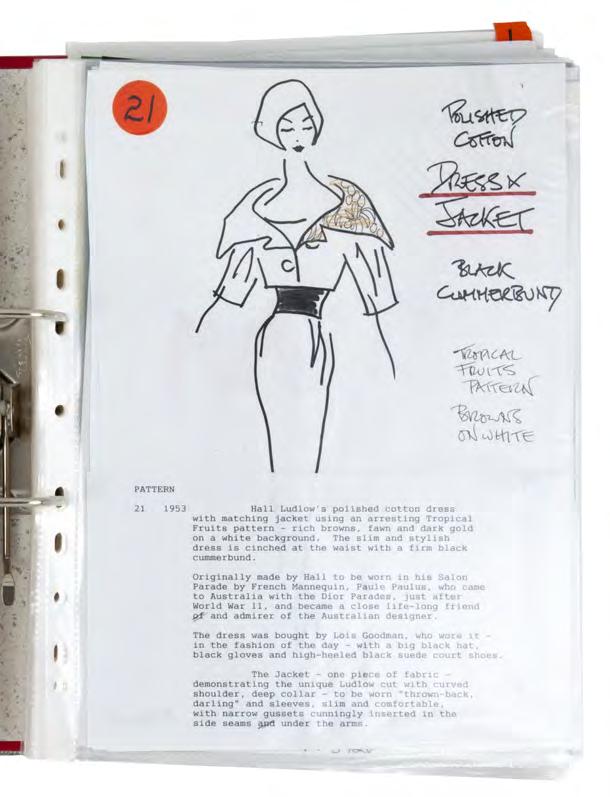 1
21
POLISHED
COTTON
DRESS &
JACKET
BLACK
CUMMERBUND
TROPICAL
FRUITS
PATTERN
BROWNS
ON WHITE
PATTERN
21 1953 Hall Ludlow's polished cotton dress
with matching jacket using an arresting Tropical
Fruits pattern - rich browns, fawn and dark gold
on a white background. The slim and stylish
dress is cinched at the waist with a firm black
cummerbund.
Originally made by Hall to be worn in his Salon
Parade by French Mannequin, Paule Paulus, who came
to Australia with the Dior Parades, just after
World War 11, and became a close life-long friend
of and admirer of the Australian designer.
The dress was bought by Lois Goodman, who wore it -
in the fashion of the day - with a big black hat,
black gloves and high-heeled black suede court shoes.
The Jacket - one piece of fabric -
demonstrating the unique Ludlow cut with curved
shoulder, deep collar - to be worn "thrown-back,
darling" and sleeves, slim and comfortable,
with narrow gussets cunningly inserted in the
side seams and under the arms.